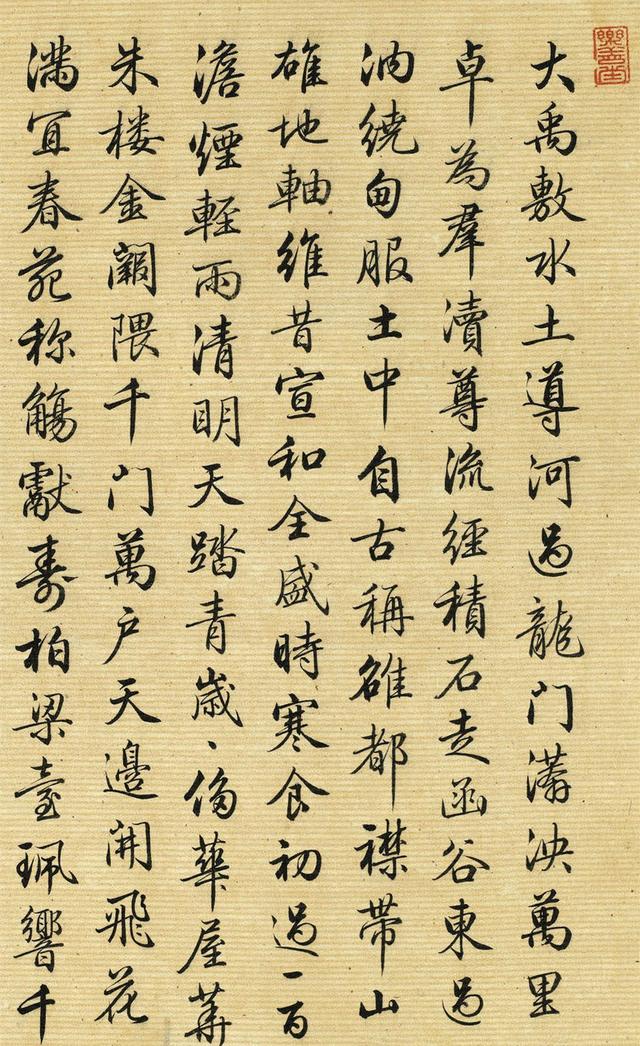 大禹敷水土導河過龍门漭泱萬里
卓為羣瀆尊流經積石走函谷東過
汭繞甸服土中自古稱雒都襟帶山
雄地軸維昔宣和全盛時寒食初過一百
澹煙輕雨清明天踏青歲、華屋
朱楼金闕隈千门萬户天邊開飛花
滿宜春苑称觴獻壽柏梁臺珮響千